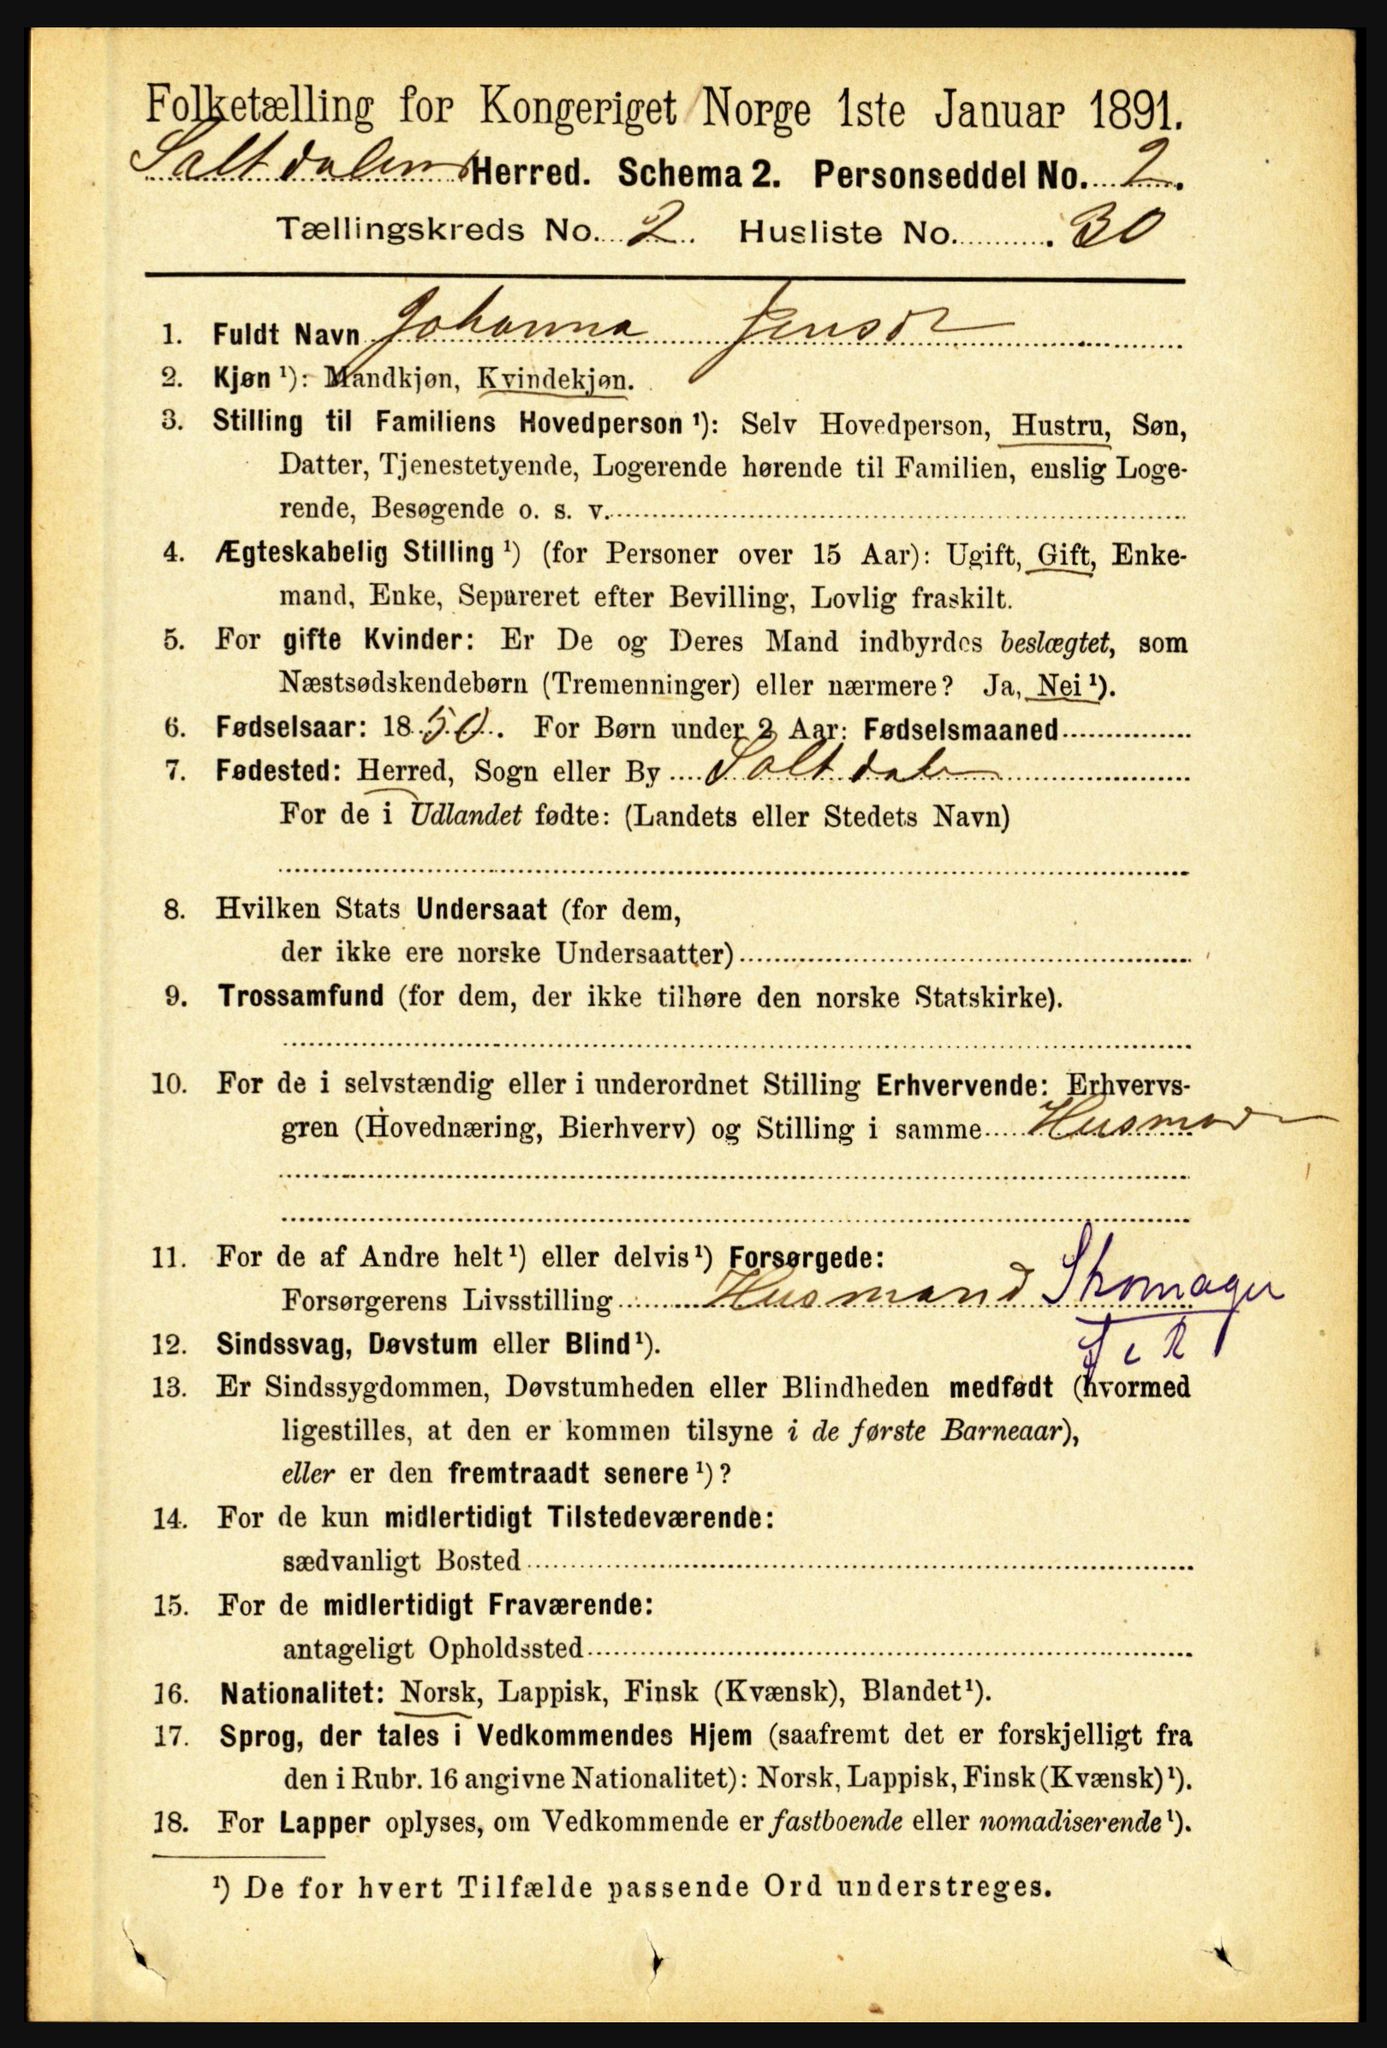 Folketælling for Kongeriget Norge 1ste Januar 1891.
Saltdalens Herred. Schema 2. Personseddel No. 2.
Tællingskreds No. 2. Husliste No. 30
1. Fuldt Navn Johanna Jensdr
2. Kjøn ¹): Mandkjøn, Kvindekjøn.
3. Stilling til Familiens Hovedperson ¹): Selv Hovedperson, Hustru, Søn,
Datter, Tjenestetyende, Logerende hørende til Familien, enslig Loge-
rende, Besøgende o. s. v.
4. Ægteskabelig Stilling ¹) (for Personer over 15 Aar): Ugift, Gift, Enke-
mand, Enke, Separeret efter Bevilling, Lovlig fraskilt.
5. For gifte Kvinder: Er De og Deres Mand indbyrdes beslægtet, som
Næstsødskendebørn (Tremenninger) eller nærmere? Ja, Nei ¹).
6. Fødselsaar: 1850. For Børn under 2 Aar: Fødselsmaaned
7. Fødested: Herred, Sogn eller By Saltdalen
For de i Udlandet fødte: (Landets eller Stedets Navn)
8. Hvilken Stats Undersaat (for dem,
der ikke ere norske Undersaatter)
9. Trossamfund (for dem, der ikke tilhøre den norske Statskirke).
10. For de i selvstændig eller i underordnet Stilling Erhvervende: Erhvervs-
gren (Hovednæring, Bierhverv) og Stilling i samme
11. For de af Andre helt ¹) eller delvis ¹) Forsørgede:
Forsørgerens Livsstilling Husmand Skomager
12. Sindssvag, Døvstum eller Blind ¹).
13. Er Sindssygdommen, Døvstumheden eller Blindheden medfødt (hvormed
ligestilles, at den er kommen tilsyne i de første Barneaar),
eller er den fremtraadt senere ¹)?
14. For de kun midlertidigt Tilstedeværende:
sædvanligt Bosted
15. For de midlertidigt Fraværende:
antageligt Opholdssted
16. Nationalitet: Norsk, Lappisk, Finsk (Kvænsk), Blandet ¹).
17. Sprog, der tales i Vedkommendes Hjem (saafremt det er forskjelligt fra
den i Rubr. 16 angivne Nationalitet): Norsk, Lappisk, Finsk (Kvænsk) ¹).
18. For Lapper oplyses, om Vedkommende er fastboende eller nomadiserende ¹).
¹) De for hvert Tilfælde passende Ord understreges.